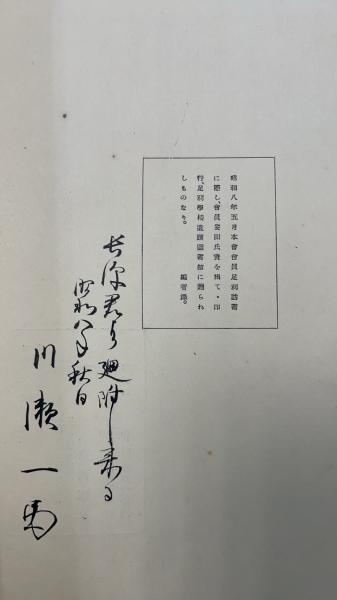 昭和八年五月本會會員足利訪書
に際し、會員安田氏資を捐て・印
行、足利學校遺蹟圖書館に贈られ
しものなり。
編者識。
廻附し来る
昭和八年秋日
川瀬一馬